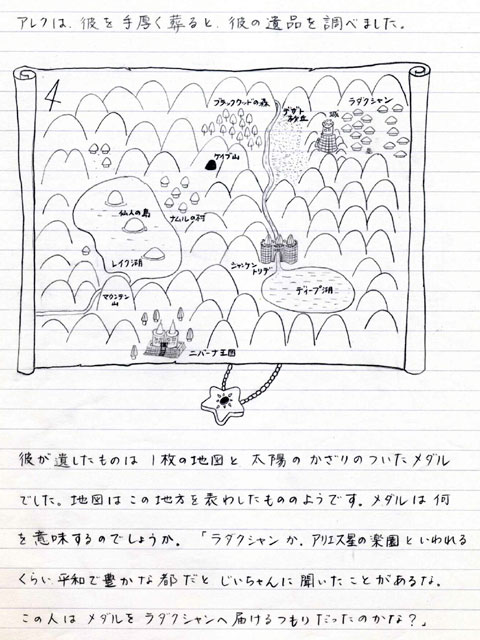 アレクは、彼を手厚く葬ると、彼の遺品を調べました。
4
ブラックウッドの森
デザト
砂丘
ラダクシャン
城
ケイブ山
仙人の島
ナムルの村
レイク湖
シャンケン
トリデ
マウンテン
山
ディープ湖
ニバーナ王国
彼が遺したものは1枚の地図と太陽のかざりのついたメダル
でした。地図はこの地方を表わしたもののようです。メダルは何
を意味するのでしょうか。「ラダクシャンか、アリエス星の楽園といわれる
くらい平和で豊かな都だとじいちゃんに聞いたことがあるな。
この人はメダルをラダクシャンへ届けるつもりだったのかな?」